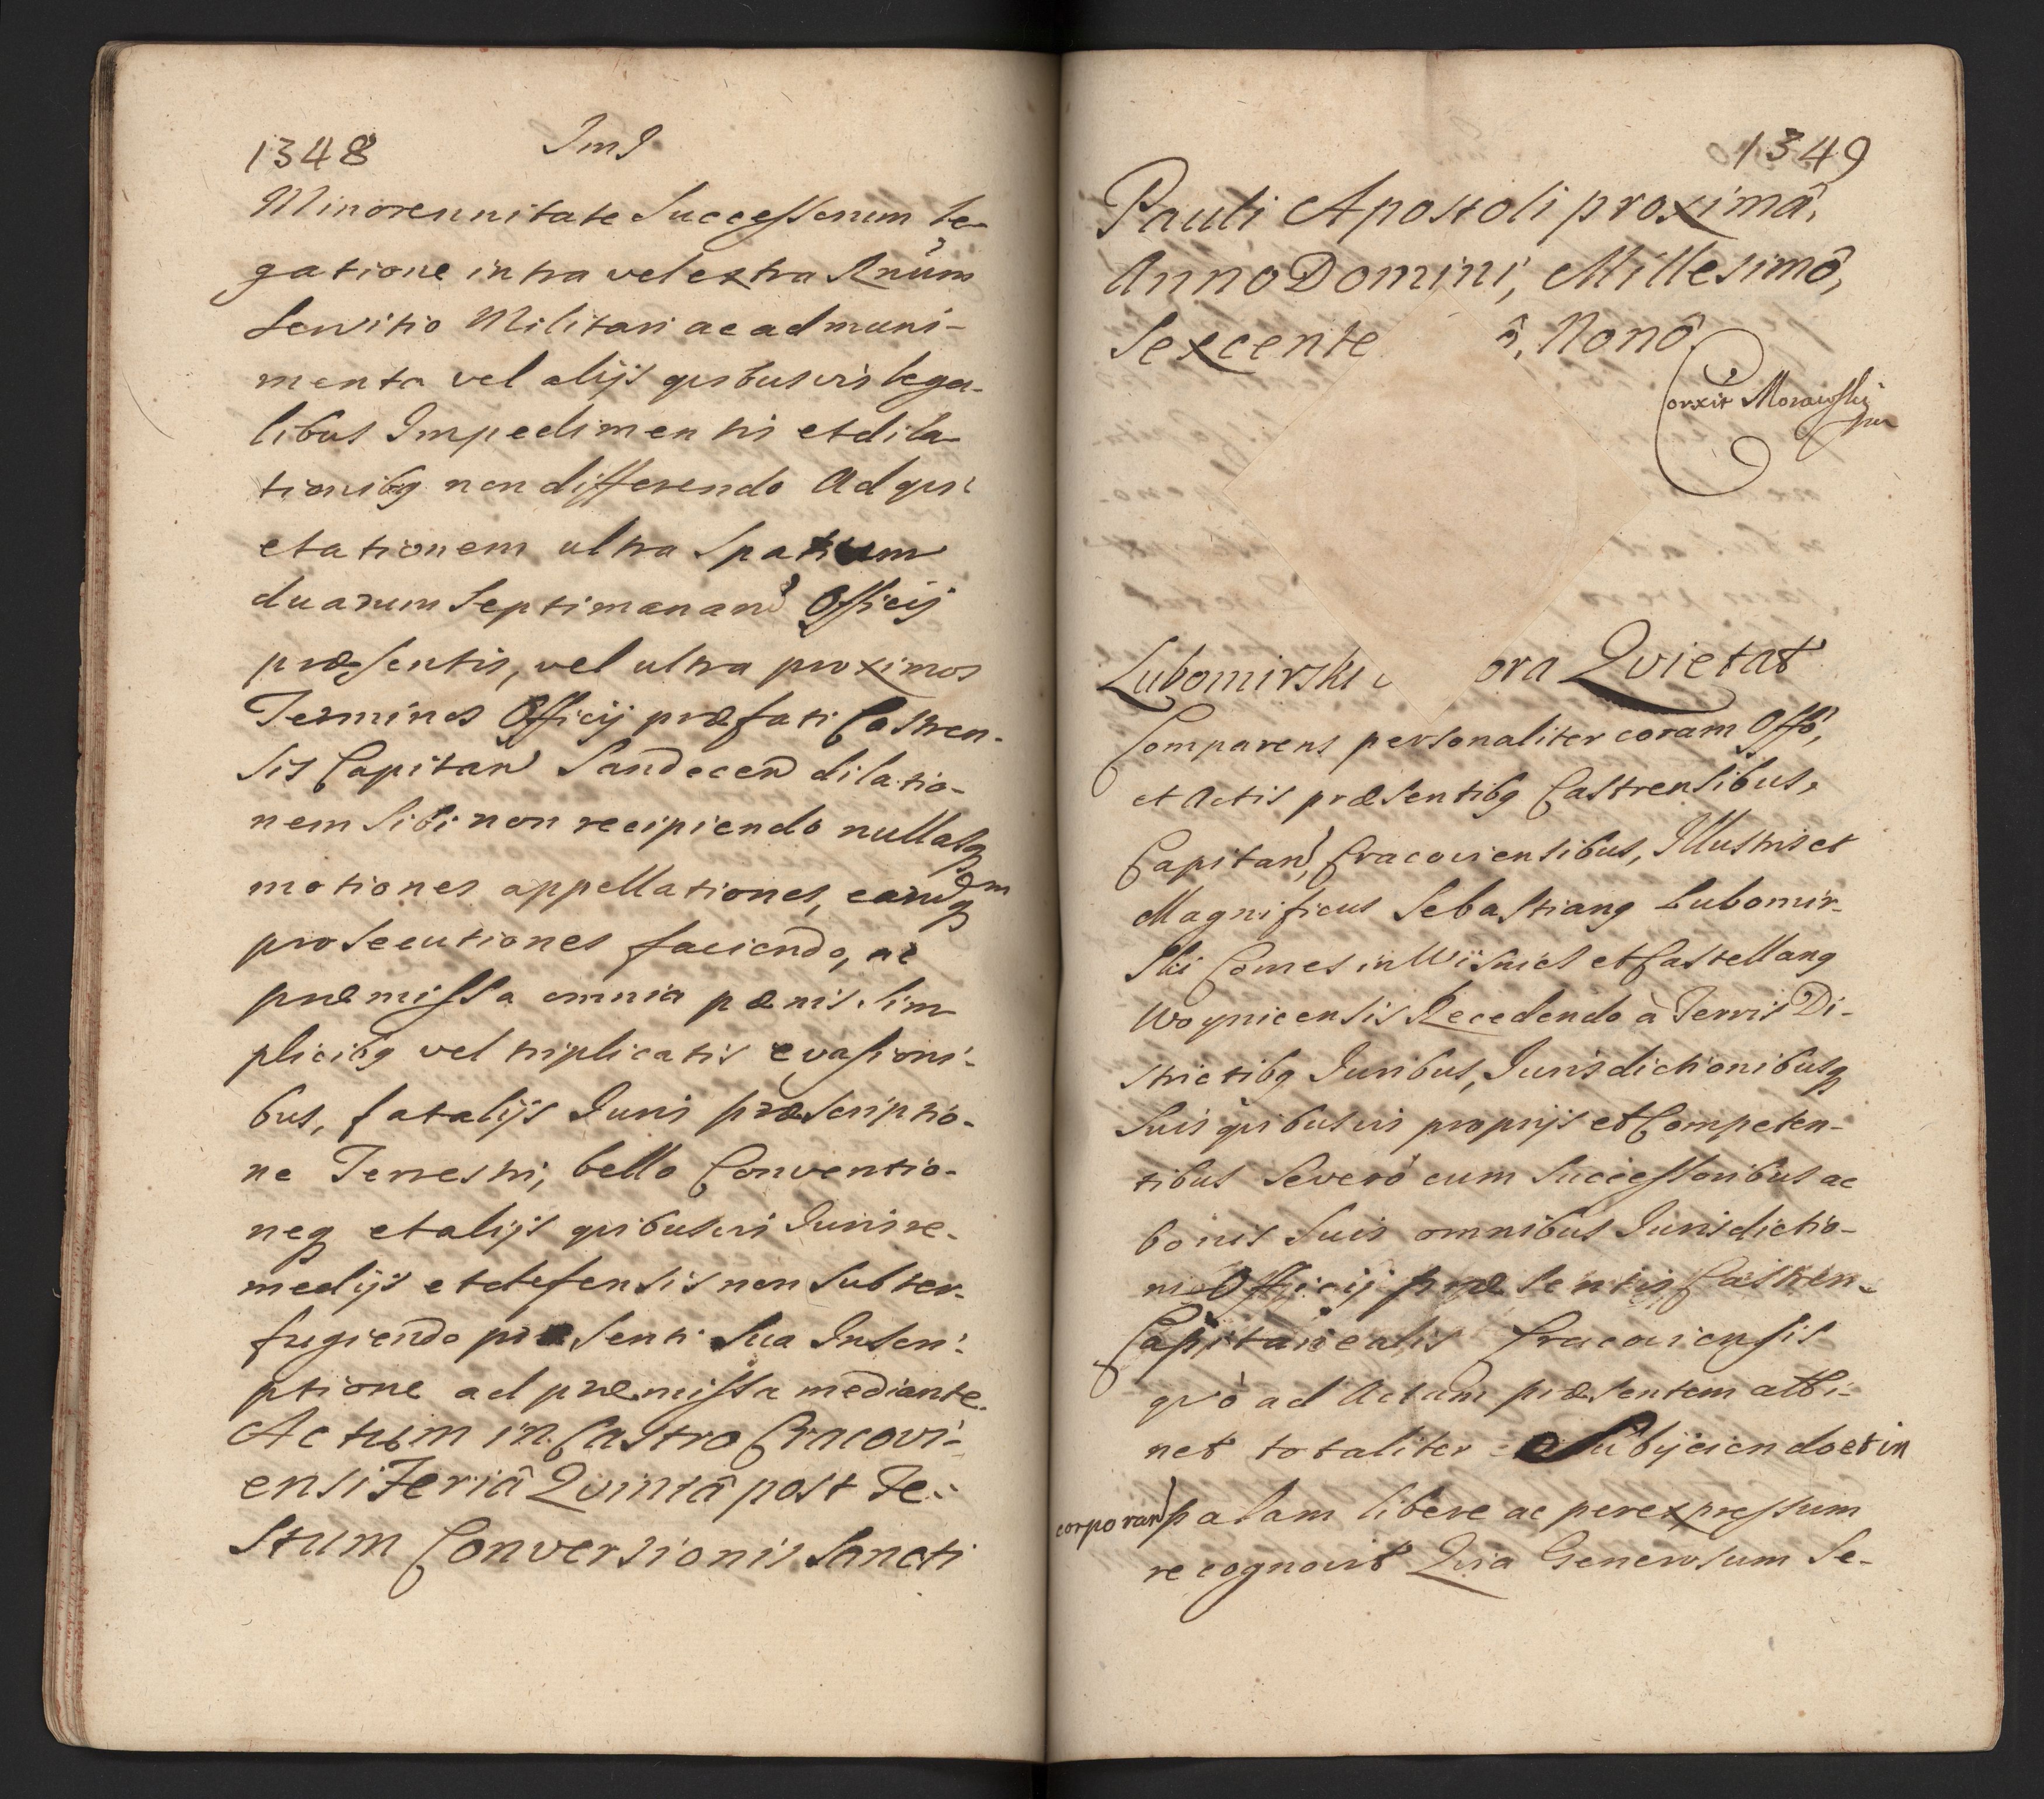 1348
Minorennitate Successorum le-
gatione intra vel extra Rnum
Servitio Militari ac ad muni-
menta vel alijs quibusvis lega-
libus Impedimentis et dila-
tionibq non differendo Ad qui
etationem ultra Spatium
duarum Septimanan Officij
præsentis, vel ultra proximos
Terminos Officij præfati Castren-
sis Capitan Sandecen dilatio-
nem Sibi non recipiendo nullasq
motiones appellationes, earudmq
prosecutiones faciendo, ac
præmissa omnia pænis Sim
plicibq vel triplicatis evasioni-
bus, fatalijs Iuris præscriptio-
ne Terrestri, bello Conventio-
neq et alijs quibusvis Iuris re-
medijs et defensis non Subter-
fugiendo præsenti Sua Inscri-
ptione ad præmissa mediante.
Actum in Castro Cracovi-
ensi Feriâ Quintâ post Fe-
stum Conversionis Sancti
1349
Pauli Apostoli proximâ,
Anno Domini, Millesimô,
Sexcente ô, Nonô
Corxit Morawski
Lubomirski ora Quietat
Comparens personaliter coram Offô,
et Actis præsentibq Castrensibus,
Capitan, Cracoviensibus, Illustris et
Magnificus Sebastianq Lubomir-
ski Comes in Wisnicz et Castellanq
Woynicensis Recedendo à Terris Di-
strictibq Iuribus, Iurisdictionibusq
Suis quibusvis proprijs et Competen-
tibus Severò cum Successoribus ac
bonis Suis omnibus Iurisdictio-
ni Officij præsentis Castren-
Capitanealis Cracoviensis
quò ad Actum præsentem atti-
net totaliter Subijciendo et in
corporan palam libere ac per expressum
recognovit Quia Generosum Se-